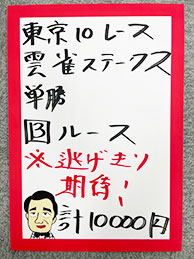 東京10レース
雲雀ステークス
単勝
⑬ルース
※逃げきり
期待!
計10000円